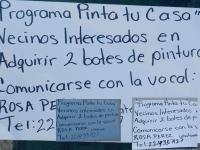 Programa Pinta tu Casa"
Vecinos Interesados en
Adquirir 2 botes de pintura
Comunicarse con la vocal:
ROSA PEREZ
Tel: 224
Programa Pinta tu Casa"
Vecinos interesados en
Adquirir 2 botes de pintura
Comunicarse con la vocal
ROSA PEREZ
Tel:
Programa Pinta
Vecinos Interes
Adquirir 2 bot
Comunicarse con la v
ROSA PEREZ
Tel: